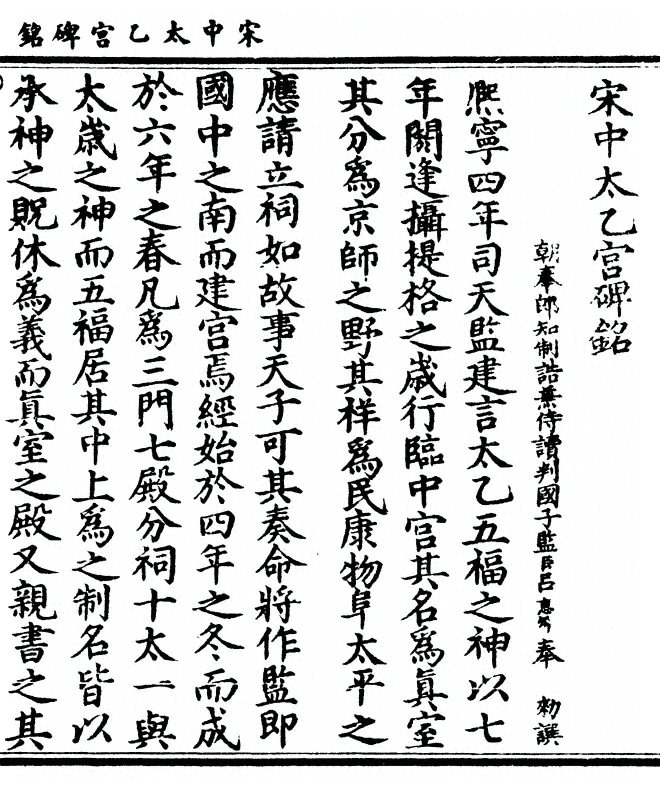 宋中太乙宫碑銘
宋中太乙宫碑銘
朝奉郎知制誥兼侍讀判國子監臣呂惠卿奉 勑譔
熈寧四年司天監建言太乙五福之神以七
年閼逢攝提格之歳行臨中宫其名爲真室
其分爲京師之野其祥爲民康物阜太平之
應請立祠如故事天子可其奏命將作監即
國中之南而建宫焉經始於四年之冬而成
於六年之春凡爲三門七殿分祠十太一與
太歳之神而五福居其中上爲之制名皆以
承神之貺休爲義而真室之殿又親書之其